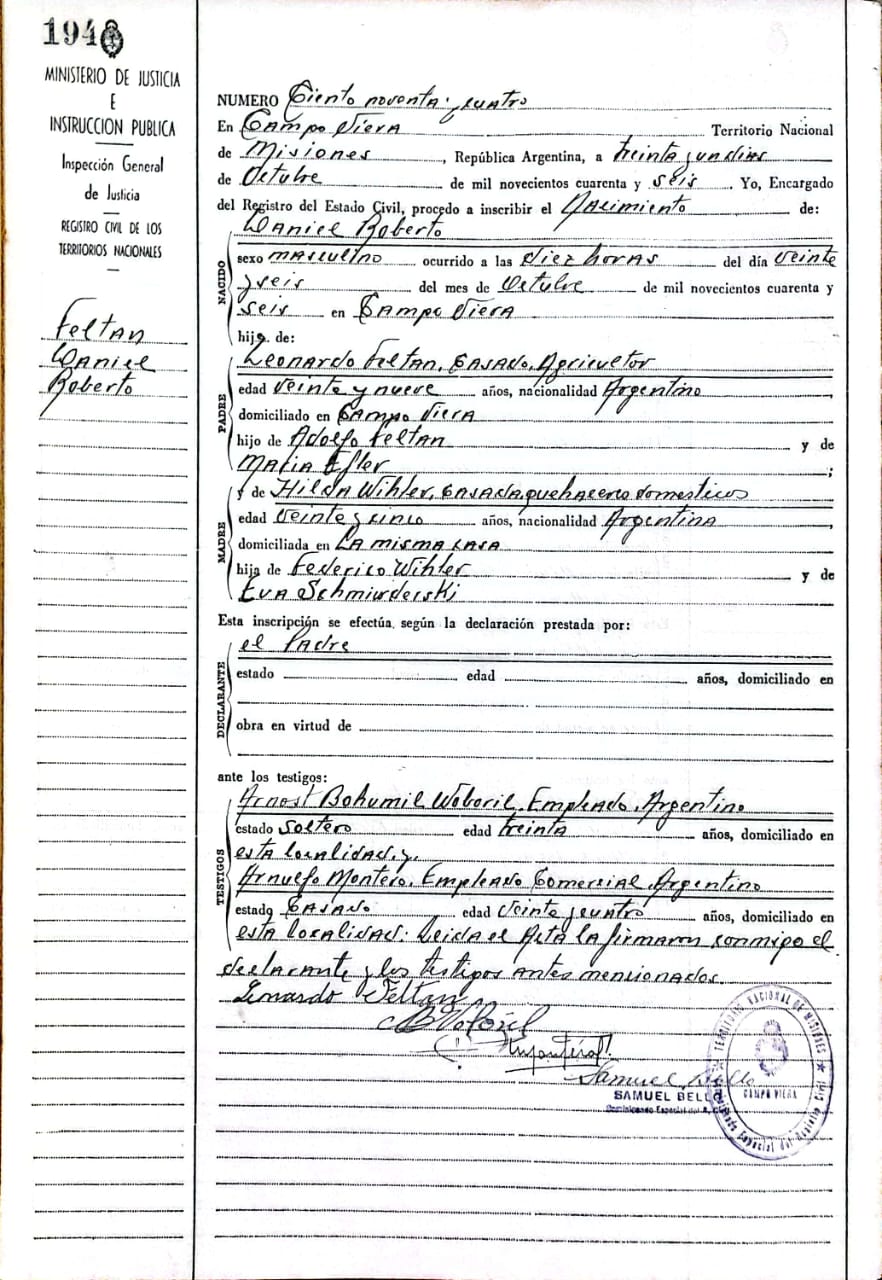 194
MINISTERIO DE JUSTICIA
E
INSTRUCCION PUBLICA
Inspección General
de Justicia
REGISTRO CIVIL DE LOS
TERRITORIOS NACIONALES
Feltan
Daniel
Roberto
NUMERO Ciento noventa y cuatro
En Campo Viera Territorio Nacional
de Misiones, República Argentina, a treinta y un dias
de Octubre de mil novecientos cuarenta y seis. Yo, Encargado
del Registro del Estado Civil, procedo a inscribir el Nacimiento de:
NACIDO
Daniel Roberto
sexo masculino ocurrido a las diez horas del día veinte
y seis del mes de Octubre de mil novecientos cuarenta y
seis en Campo Viera
hijo de:
PADRE
Leonardo Feltan, Casado, Agricultor
edad veinte y nueve años, nacionalidad Argentino,
domiciliado en Campo Viera
hijo de Adolfo Feltan y de
Maria Efler;
MADRE
y de Hilda Wihler, casada, quehaceres domesticos
edad veinte y cinco años, nacionalidad Argentina,
domiciliada en La misma casa
hija de Federico Wihler y de
Eva
Esta inscripción se efectúa, según la declaración prestada por:
DECLARANTE
el Padre
estado edad años, domiciliado en
obra en virtud de
ante los testigos:
TESTIGOS
Arnost Bohumil Woboril, Empleado, Argentino
estado soltero edad treinta años, domiciliado en
esta localidad, y,
Arnulfo Montero, Empleado Comercial, Argentino
estado Casado edad veinte y cuatro años, domiciliado en
esta localidad: Leida el Acta la firmaron conmigo el
declarante y los testigos antes mencionados.
Leonardo Feltan
Samuel Bello
SAMUEL BELLO
TERRITORIO NACIONAL DE MISIONES
CAMPO VIERA